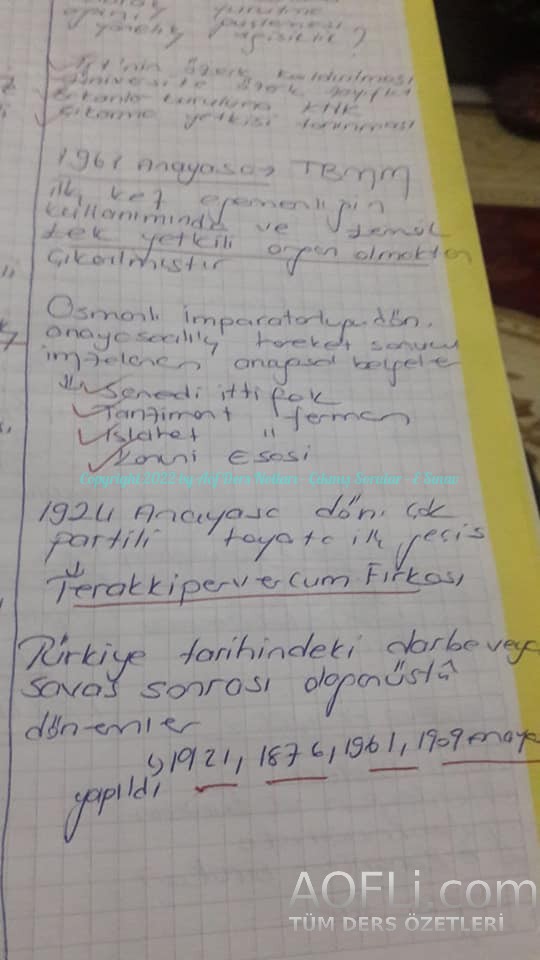 yürütme
değişiklik?
TRT'nin özerk kaldırılması
üniversite özerk zayıflat
Bakanlar kuruluna KHK
çıkarma yetkisi tanınması
1961 Anayasa → TBMM
ilk kez egemenliğin
kullanımında ve temsil
tek yetkili organ olmaktan
çıkarılmıştır
Osmanlı imparatorluğu dön.
anayasacılık hareket sonucu
imzalanan anayasal belgeler
Senedi ittifak
Tanzimat ferman
Islahat "
Kanuni Esasi
Copyright 2022 by Aöf Ders Notları - Çıkmış Sorular - E Sınav
1924 Anayasa dön. çok
partili hayata ilk geçiş
Terakkiperver cum. Fırkası
Türkiye tarihindeki darbe veya
savaş sonrası olağanüstü
dönemler
1921, 1876, 1961, 1909 anaya
yapıldı
AOFLi.com
TÜM DERS ÖZETLERİ